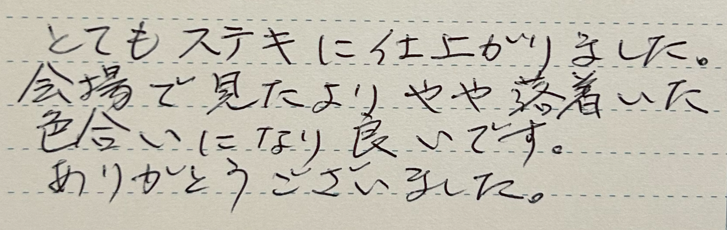 とてもステキに仕上がりました。
会場で見たよりやや落着いた
色合いになり良いです。
ありがとうございました。